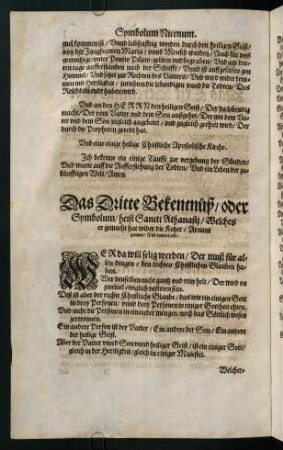 Symbolum Nicenum.
mel kommen ist/ Vnnd leibhafftig worden durch den heiligen Geist/
von der Jungfrawen Maria/ vnnd Mensch worden/ Auch für vns
gecreutziget/ vnter Pontio Pilato/ gelitten vnd begraben/ Vnd am
dritten tage aufferstanden nach der Schrifft/ Vnnd ist auffgefaren gen
Himmel/ Vnd sitzet zur Rechten des Vatters/ Vnd wird wider
kommen mit Herrligkeit/ zurichten die lebendigen vnnd die Todten/ Des
Reich kein ende haben wird.
Vnd an den HERRN den heiligen Geist/ Der da lebendig
macht/ Der vom Vatter vnd dem Son außgehet/ Der mit dem Vatter
vnd dem Son zugleich angebetet/ vnd zugleich geehret wird/ Der
durch die Propheten geredt hat.
Vnd eine einige heilige Christliche Apostolische Kirche.
Ich bekenne ein einige Tauffe zur vergebung der Sünden/
Vnd warte auff die Aufferstehung der Todten/ Vnd ein Leben der
zukünfftigen Welt/ Amen.
Das Dritte Bekentnüß/ oder
Symbolum/ heist Sanct Athanasij/ Welches
er gemacht hat wider die Ketzer/ Ariani
WER da will selig werden/ Der muß für allen
dingen/ den rechten Christlichen Glauben
haben.
Wer denselben nicht gantz vnd rein helt/ Der wird on
zweiuel ewiglich verloren sein.
Diß ist aber der rechte Christliche Glaube/ das wir ein einigen Gott
in dreyen Personen/ vnnd drey Personen in einiger Gottheit ehren.
Vnd nicht die Personen in einander mengen/ noch das Göttlich wesen
zertrennen.
Ein andere Person ist der Vatter/ Ein andere der Son/ Ein andere
der heilige Geist.
Aber der Vatter vnnd Son vnnd heiliger Geist/ ist ein einiger Gott/
gleich in der Herrligkeit/ gleich in ewiger Maiestet.
Welcher-